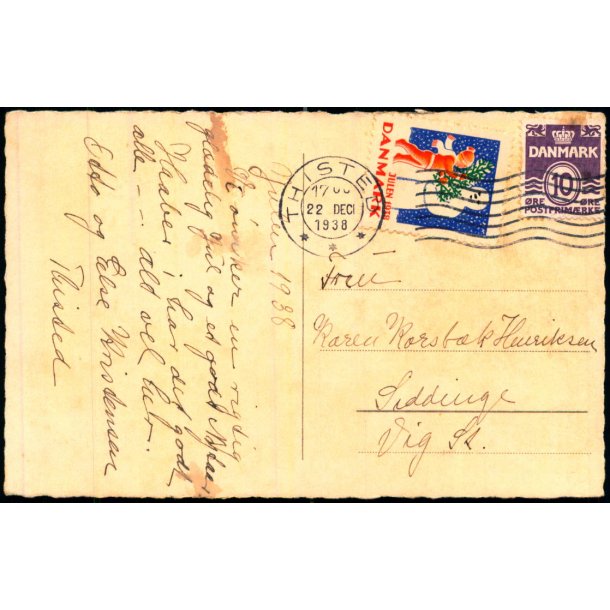 Julen 1938
Vi ønsker en rigtig
glædelig Jul og et godt Nytaar
Haaber i har det godt
alle -- ald vel her.
Edto og Else Kristensen
Thisted
THISTED
17 00
22 DEC
1938
JULEN 1938
DANMARK
DANMARK
10
ØRE ØRE
POSTFRIMÆRKE
Fru
Karen Korsbæk Henriksen
Siddinge
Vig St.